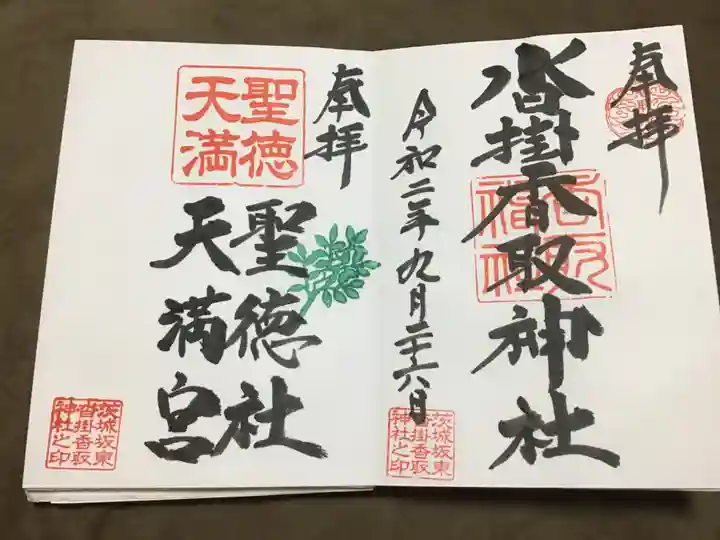 奉拝
沓掛香取神社
香取
神社
令和二年九月二十六日
茨城坂東
沓掛香取
神社之印
奉拝
聖徳社
天満宮
聖徳
天満
茨城坂東
沓掛香取
神社之印